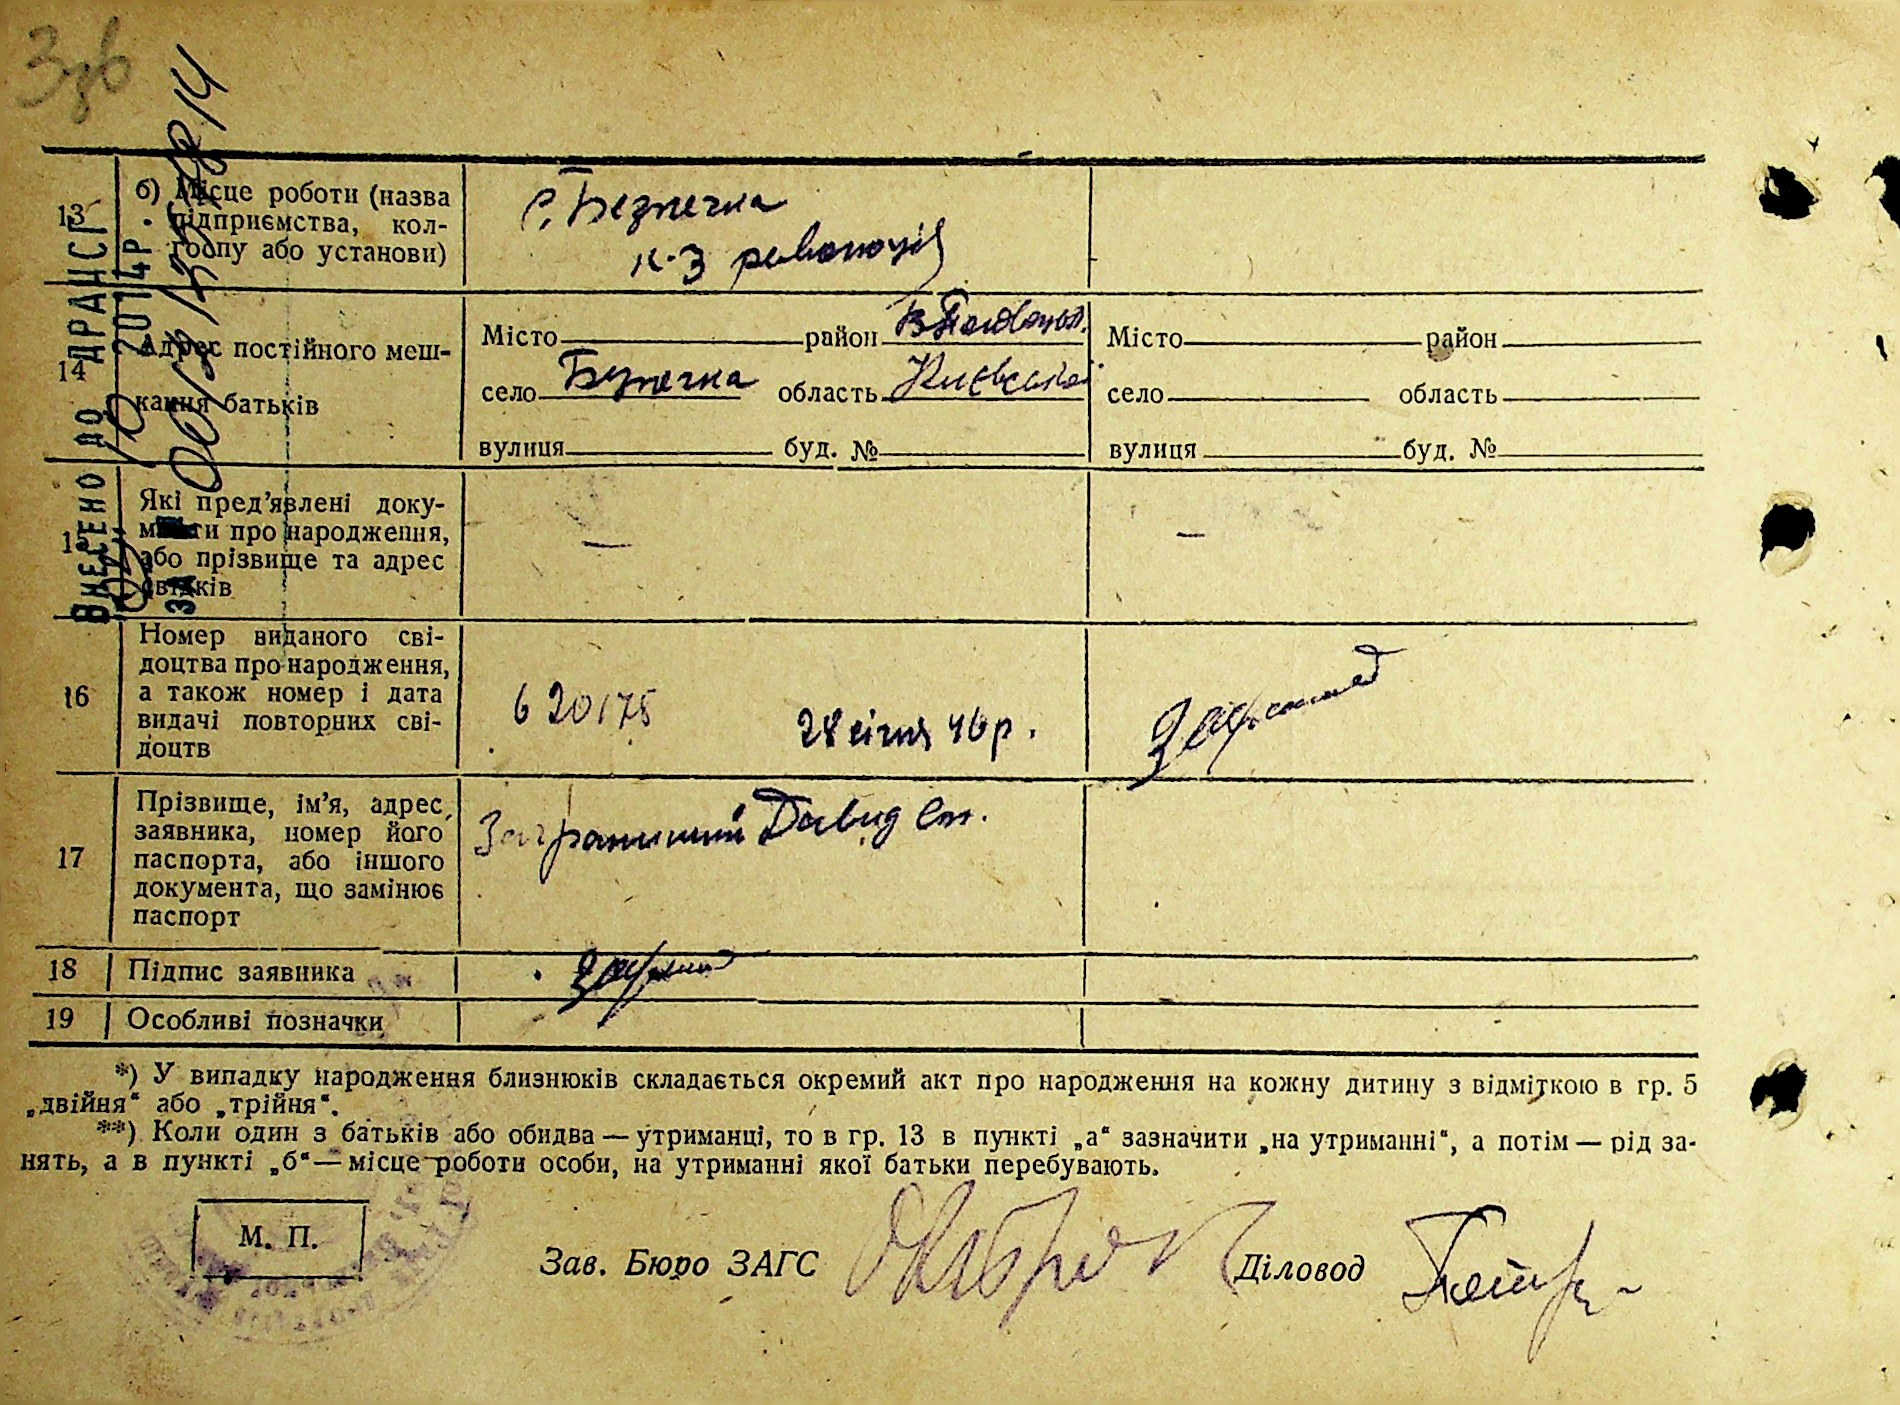 13
б) Місце роботи (назва
підприємства, кол-
госпу або установи)
с. Безпечна
к-з революції
14
Адрес постійного меш-
кання батьків
Місто район
село Безпечна область Київська
вулиця буд. №
Місто район
село область
вулиця буд. №
15
Які пред'явлені доку-
менти про народження,
або прізвище та адрес
свідків
—
—
16
Номер виданого сві-
доцтва про народження,
а також номер і дата
видачі повторних сві-
доцтв
620175
28 січня 46 р.
17
Прізвище, ім'я, адрес
заявника, номер його
паспорта, або іншого
документа, що замінює
паспорт
Давид Ст.
18
Підпис заявника
19
Особливі позначки
*) У випадку народження близнюків складається окремий акт про народження на кожну дитину з відміткою в гр. 5
„двійня“ або „трійня“.
**) Коли один з батьків або обидва — утриманці, то в гр. 13 в пункті „а“ зазначити „на утриманні“, а потім — рід за-
нять, а в пункті „б“ — місце роботи особи, на утриманні якої батьки перебувають.
М. П.
Зав. Бюро ЗАГС
Діловод
ВНЕСЕНО ДО ДРАЦСГ
2014р.
ЗА